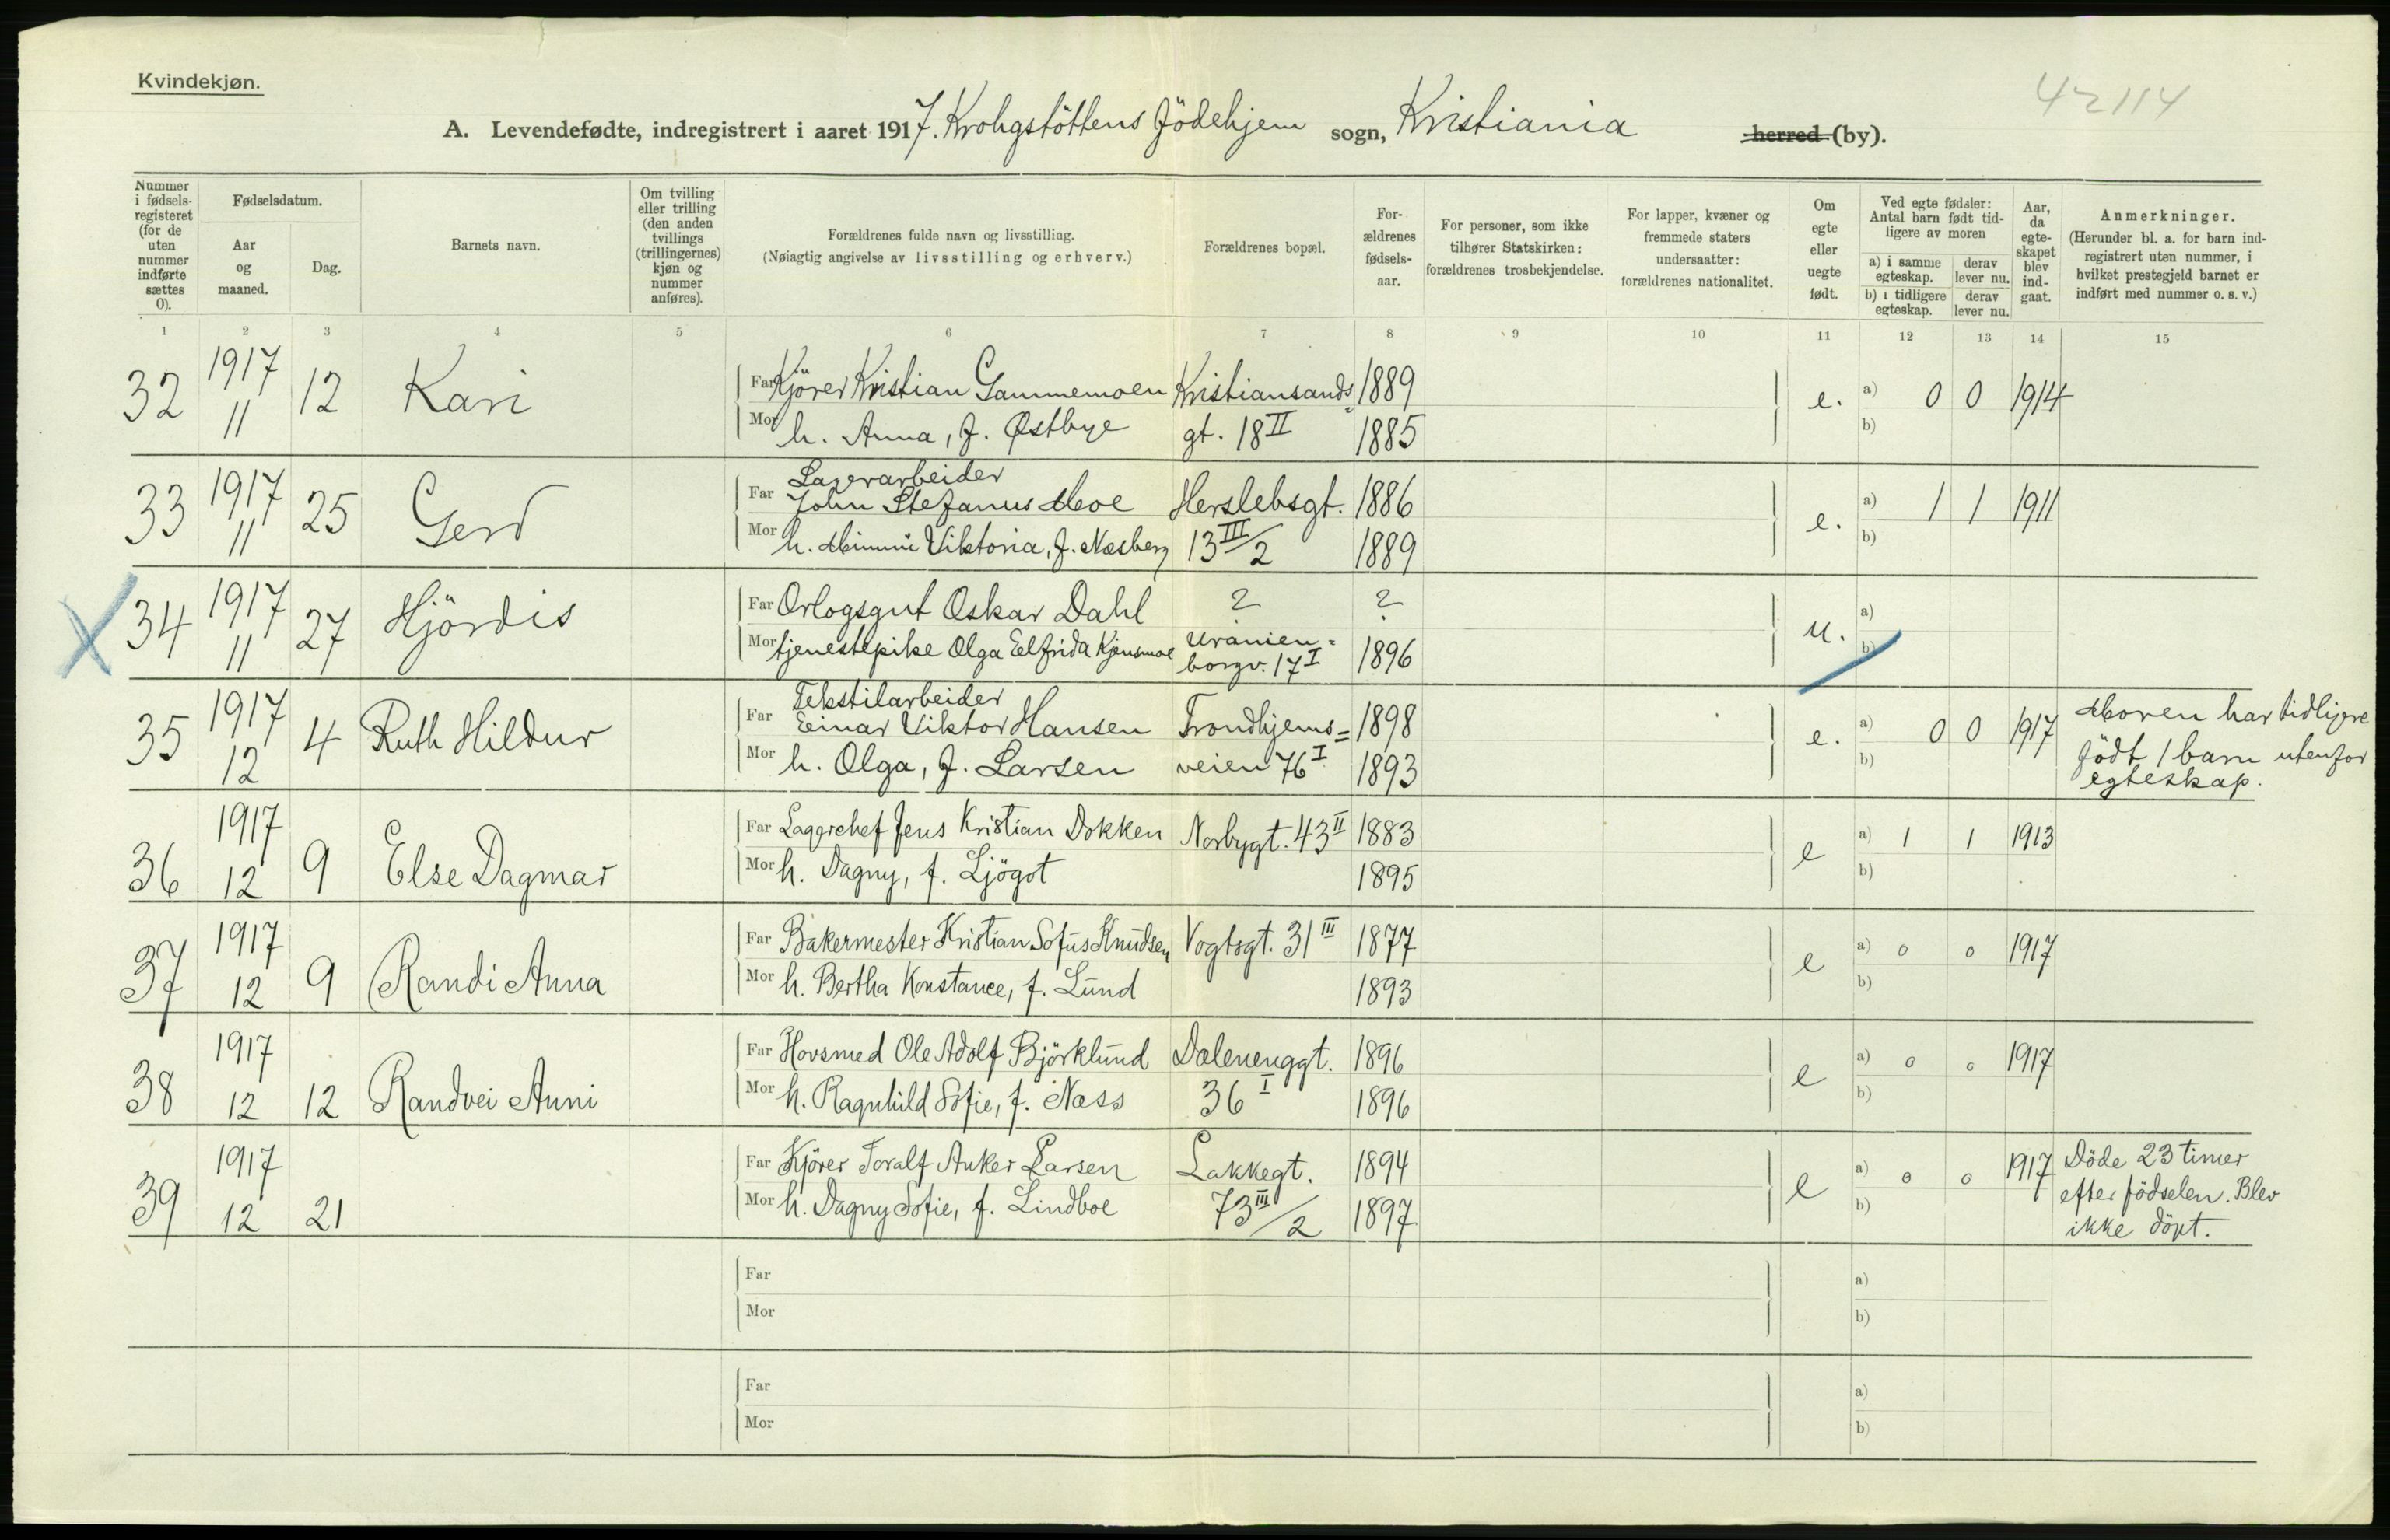 Kvindekjøn.
42114
A. Levendefødte, indregistrert i aaret 1917. Krohgstöttens Födehjem sogn, Kristiania herred (by).
Nummer i fødsels-registeret (for de uten nummer indførte sættes 0).
Fødselsdatum.
Aar og maaned.
Dag.
Barnets navn.
Om tvilling eller trilling (den anden tvillings (trillingernes) kjøn og nummer anføres).
Forældrenes fulde navn og livsstilling.
(Nøiagtig angivelse av livsstilling og erhverv.)
Forældrenes bopæl.
For-ældrenes fødsels-aar.
For personer, som ikke tilhører Statskirken: forældrenes trosbekjendelse.
For lapper, kvæner og fremmede staters undersaatter: forældrenes nationalitet.
Om egte eller uegte født.
Ved egte fødsler: Antal barn født tid-ligere av moren
a) i samme egteskap. derav lever nu.
b) i tidligere egteskap. derav lever nu.
Aar, da egte-skapet blev ind-gaat.
Anmerkninger.
(Herunder bl. a. for barn ind-registrert uten nummer, i hvilket prestegjeld barnet er indført med nummer o. s. v.)
1 2 3 4 5 6 7 8 9 10 11 12 13 14 15
32 1917 11 12 Kari
Far Kjörer Kristian Gammemoen Kristiansands= 1889 e. a) 0 0 1914
Mor h. Anna, f. Østbye gt. 18 II 1885 b)
33 1917 11 25 Gerd
Lagerarbeider
Far John Stefanus Moe Herslebsgt. 1886 e. a) 1 1 1911
Mor h. Mimmi Viktoria, f. Næsberg 13 III/2 1889 b)
X 34 1917 11 27 Hjördis
Far Orlogsgut Oskar Dahl ? ? u. a)
Mor tjenestepike Olga Elfrida Kjensmoe Uranien=borgv. 17 I 1896 b)
35 1917 12 4 Ruth Hildur
Tekstilarbeider
Far Einar Viktor Hansen Trondhjems= 1898 e. a) 0 0 1917
Mor h. Olga, f. Larsen veien 76 I 1893 b)
Moren har tidligere
födt 1 barn utenfor
egteskap.
36 1917 12 9 Else Dagmar
Far Lagerchef Jens Kristian Dokken Norbygt. 43 II 1883 e a) 1 1 1913
Mor h. Dagny, f. Ljögot 1895 b)
37 1917 12 9 Randi Anna
Far Bakermester Kristian Sofus Knudsen Vogtsgt. 31 III 1877 e a) 0 0 1917
Mor h. Bertha Konstance, f. Lund 1893 b)
38 1917 12 12 Randvei Anni
Far Hovsmed Ole Adolf Björklund Dælenenggt. 1896 e a) 0 0 1917
Mor h. Ragnhild Sofie, f. Næss 36 I 1896 b)
39 1917 12 21
Far Kjörer Toralf Anker Larsen Lakkegt. 1894 e a) 0 0 1917
Mor h. Dagny Sofie, f. Lindboe 73 III/2 1897 b)
Döde 23 timer
efter födselen. Blev
ikke döpt.
Far a)
Mor b)
Far a)
Mor b)